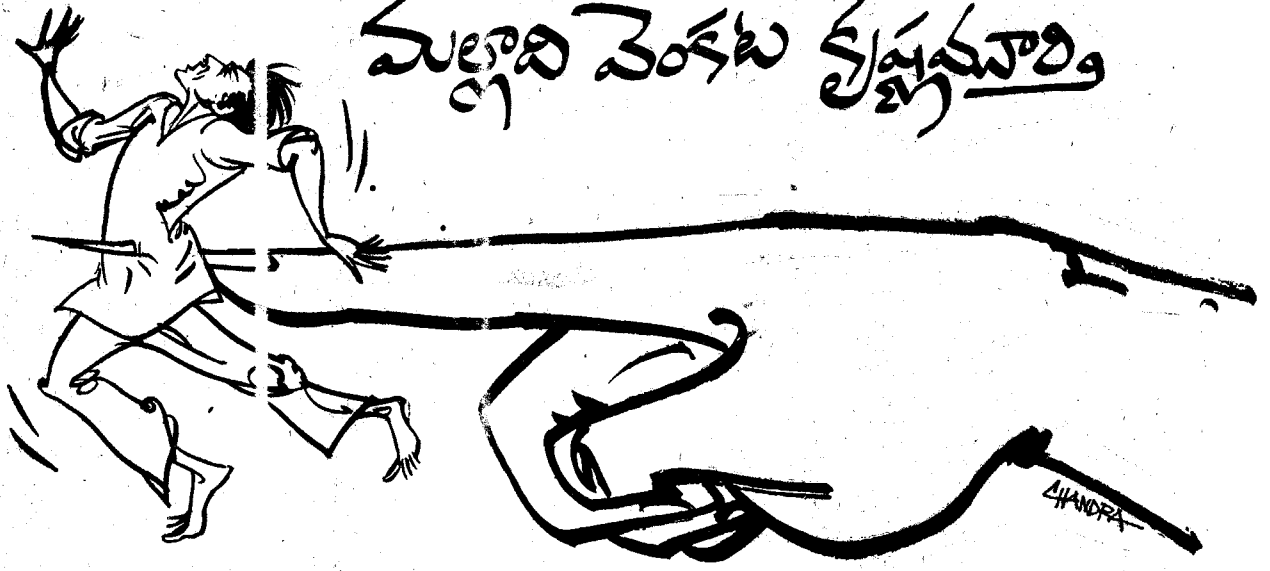 మల్లాది వెంకట కృష్ణమూర్తి
CHANDRA